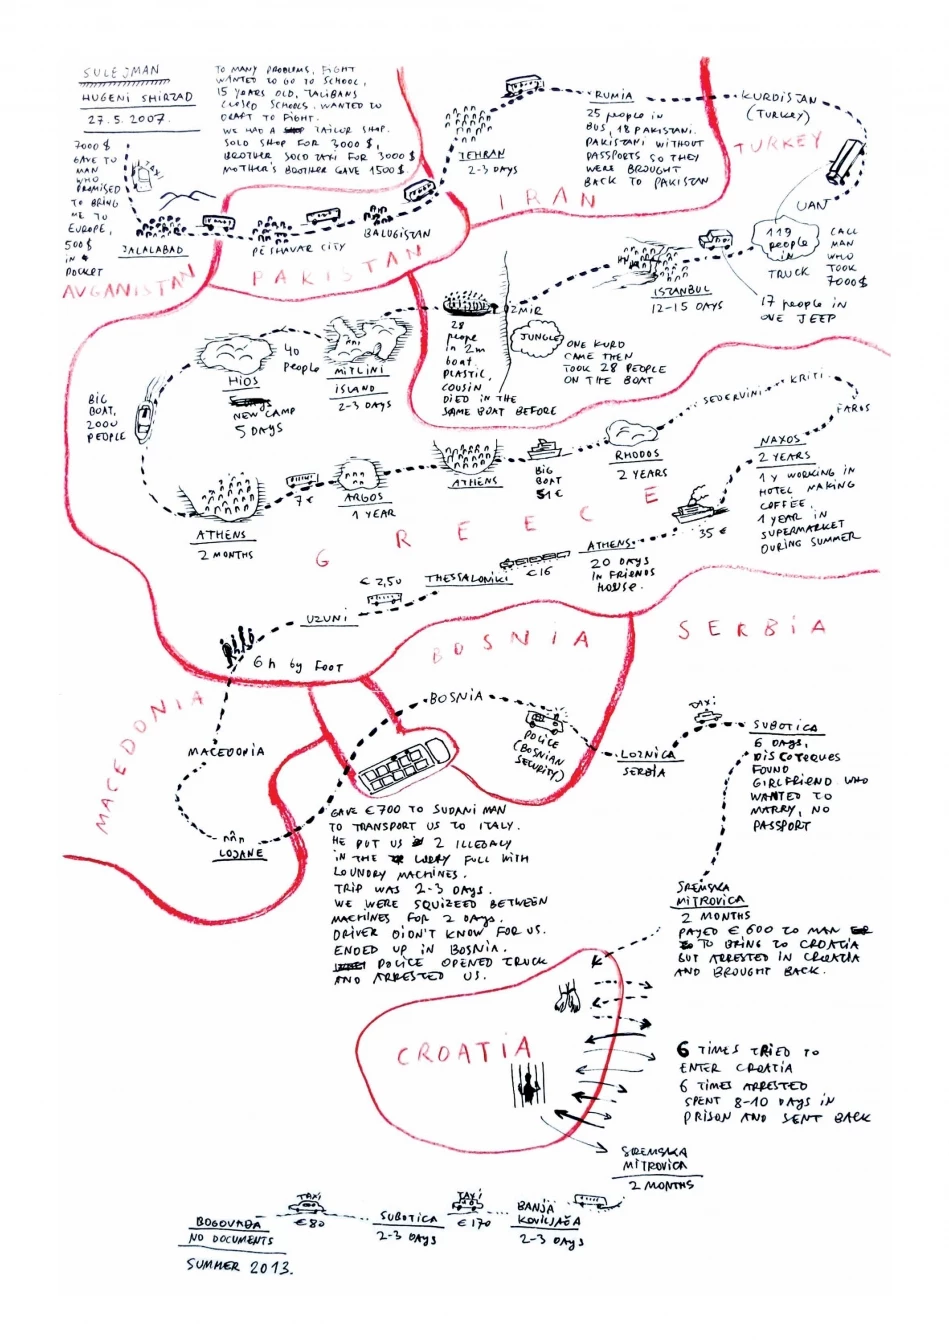 SULEJMAN
HUGENI SHIRZAD
27.5.2007.
7000 $
GAVE TO
MAN
WHO
PROMISED
TO BRING
ME TO
EUROPE,
500 $
IN
POCKET
TAXI
TO MANY PROBLEMS, FIGHT
WANTED TO GO TO SCHOOL,
15 YEARS OLD, TALIBANS
CLOSED SCHOOLS. WANTED TO
DRAFT TO FIGHT.
WE HAD A TAILOR SHOP.
SOLD SHOP FOR 3000 $,
BROTHER SOLD TAXI FOR 3000 $
MOTHER'S BROTHER GAVE 1500 $.
JALALABAD
PESHAVAR CITY
BALUGISTAN
AVGANISTAN
PAKISTAN
TEHRAN
2-3 DAYS
IRAN
RUMIA
25 people in
BUS, 18 PAKISTANI.
PAKISTANI WITHOUT
PASSPORTS SO THEY
WERE BROUGHT
BACK TO PAKISTAN
KURDISTAN
(TURKEY)
TURKEY
UAN
119
people
in
TRUCK
CALL
MAN
WHO
TOOK
7000 $
17 people in
ONE JEEP
ISTANBUL
12-15 DAYS
IZMIR
JUNGLE
ONE KURD
CAME THEN
TOOK 28 PEOPLE
ON THE BOAT
28
people
in 2m
boat
PLASTIC,
COUSIN
DIED IN THE
SAME BOAT BEFORE
MITLINI
ISLAND
2-3 DAYS
40
People
HIOS
NEW CAMP
5 DAYS
BIG
BOAT,
2000
PEOPLE
ATHENS
2 MONTHS
7 €
ARGOS
1 YEAR
ATHENS
BIG
BOAT
51 €
RHODOS
2 YEARS
SEDERVINI
KRITI
FAROS
NAXOS
2 YEARS
1 Y WORKING IN
HOTEL MAKING
COFFEE.
1 YEAR IN
SUPERMARKET
DURING SUMMER
GREECE
35 €
ATHENS
20 DAYS
IN FRIENDS
HOUSE.
€16
THESSALONIKI
€ 2,50
UZUNI
6h by FOOT
MACEDONIA
MACEDONIA
LOJANE
BOSNIA
SERBIA
BOSNIA
POLICE
(BOSNIAN
SECURITY)
LOZNICA
SERBIA
TAXI
SUBOTICA
6 DAYS,
DISCOTEQUES
FOUND
GIRLFRIEND WHO
WANTED TO
MARRY, NO
PASSPORT
GAVE €700 TO SUDANI MAN
TO TRANSPORT US TO ITALY.
HE PUT US 2 ILLEGALY
IN THE LORRY FULL WITH
LOUNDRY MACHINES.
TRIP WAS 2-3 DAYS.
WE WERE SQUIZEED BETWEEN
MACHINES FOR 2 DAYS.
DRIVER DIDN'T KNOW FOR US.
ENDED UP IN BOSNIA.
POLICE OPENED TRUCK
AND ARRESTED US.
SREMSKA
MITROVICA
2 MONTHS
PAYED € 600 TO MAN
TO BRING TO CROATIA
BUT ARRESTED IN CROATIA
AND BROUGHT BACK.
CROATIA
6 TIMES TRIED TO
ENTER CROATIA
6 TIMES ARRESTED
SPENT 8-10 DAYS IN
PRISON AND SENT BACK
SREMSKA
MITROVICA
2 MONTHS
BANJA
KOVILJAČA
2-3 DAYS
TAXI
€ 170
SUBOTICA
2-3 DAYS
TAXI
€ 80
BOGOVAĐA
NO DOCUMENTS
SUMMER 2013.